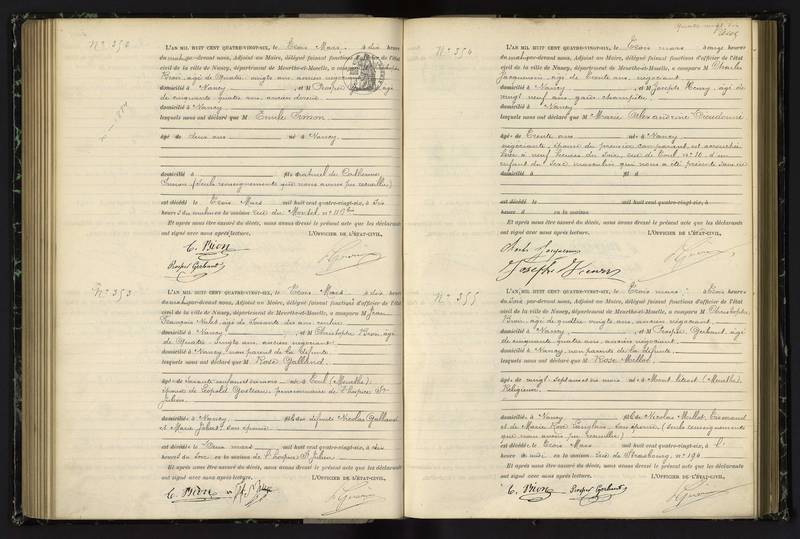 N° 352
L'AN MIL HUIT CENT QUATRE-VINGT-SIX, le Trois Mars, à dix heures
du matin, par-devant nous, Adjoint au Maire, délégué faisant fonctions d'officier de l'état
civil de la ville de Nancy, département de Meurthe-et-Moselle, a comparu M Christophe
Bion, âgé de Quatre vingts ans, ancien
domicilié à Nancy, et M Prosper âgé
de cinquante quatre ans, ancien
domicilié à Nancy
lesquels nous ont déclaré que M Emile Simon
âgé de deux ans né à Nancy
domicilié à fils naturel de Catherine
Simon (seuls renseignements que nous avons pu recueillir)
est décédé le Trois Mars mil huit cent quatre-vingt-six, à six
heures du matin en la maison rue du Montet, n° 110 bis
Et après nous être assuré du décès, nous avons dressé le présent acte que les déclarants
ont signé avec nous après lecture. L'OFFICIER DE L'ÉTAT-CIVIL,
C. Bion
Prosper Gerbaut
N° 353
L'AN MIL HUIT CENT QUATRE-VINGT-SIX, le Trois Mars à dix heures
du matin par-devant nous, Adjoint au Maire, délégué faisant fonctions d'officier de l'état
civil de la ville de Nancy, département de Meurthe-et-Moselle, a comparu M Jean
François âgé de soixante dix ans
domicilié à Nancy, et M Christophe Bion, âgé
de Quatre vingts ans, ancien négociant
domicilié à Nancy, non parent de la défunte
lesquels nous ont déclaré que M Rose Galland
âgée de soixante né à Toul (Meurthe)
épouse de Léopold pensionnaire de l'hospice St
Julien
domicilié à Nancy fille des défunts Nicolas Galland
et Marie son épouse
est décédé le deux mars mil huit cent quatre-vingt-six, à dix
heures du soir en la maison de l'hospice St Julien
Et après nous être assuré du décès, nous avons dressé le présent acte que les déclarants
ont signé avec nous après lecture. L'OFFICIER DE L'ÉTAT-CIVIL,
C. Bion
Quatre vingt dix
N° 354
L'AN MIL HUIT CENT QUATRE-VINGT-SIX, le Trois mars à onze heures
du matin par-devant nous, Adjoint au Maire, délégué faisant fonctions d'officier de l'état
civil de la ville de Nancy, département de Meurthe-et-Moselle, a comparu M Charles
Jacquemin, âgé de Trente ans, négociant
domicilié à Nancy, et M Joseph Henry, âgé de
vingt neuf ans, garde champêtre
domicilié à Nancy
lesquels nous ont déclaré que M Marie Alexandrine Dieudonné
âgée de Trente ans née à Nancy
négociante, épouse du premier comparant, est accouchée
hier à neuf heures du soir, rue de Toul, n° 10, d'un
enfant du sexe masculin qui nous a été présenté sans vie
domicilié à fil d
est décédé le mil huit cent quatre-vingt-six, à
heure d en la maison
Et après nous être assuré du décès, nous avons dressé le présent acte que les déclarants
ont signé avec nous après lecture. L'OFFICIER DE L'ÉTAT-CIVIL,
Jacquemin
Joseph Henry
N° 355
L'AN MIL HUIT CENT QUATRE-VINGT-SIX, le Trois mars, à trois heures
du soir par-devant nous, Adjoint au Maire, délégué faisant fonctions d'officier de l'état
civil de la ville de Nancy, département de Meurthe-et-Moselle, a comparu M Christophe
Bion, âgé de quatre vingts ans, ancien négociant
domicilié à Nancy, et M Prosper Gerbaut, âgé
de cinquante quatre ans, ancien négociant
domicilié à Nancy, non parents de la défunte
lesquels nous ont déclaré que M Rose Mullot
âgée de vingt sept ans et six mois née à (Meurthe)
Religieuse
domicilié à Nancy fille de Nicolas Mullot, Tisserand
et de Marie Rose son épouse (seuls renseignements
que nous avons pu recueillir)
est décédé le Trois Mars mil huit cent quatre-vingt-six, à l'
heure de midi en la maison rue de Strasbourg, n° 194
Et après nous être assuré du décès, nous avons dressé le présent acte que les déclarants
ont signé avec nous après lecture. L'OFFICIER DE L'ÉTAT-CIVIL,
C. Bion Prosper Gerbaut